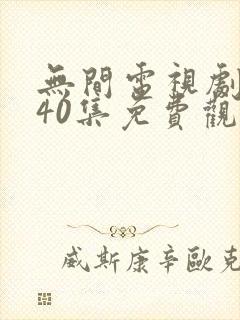 無間電視劇
40集免費觀
威斯康辛歐克